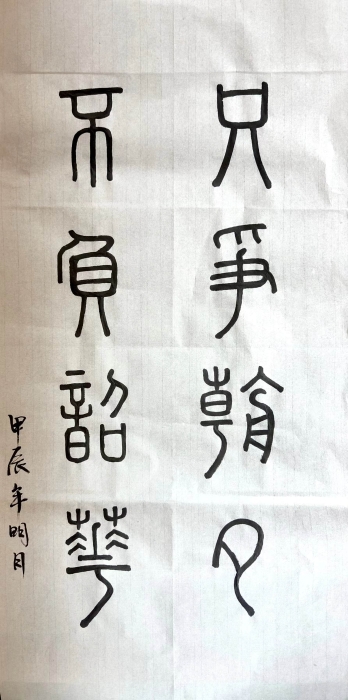 只争朝夕
不负韶華
甲辰年明月